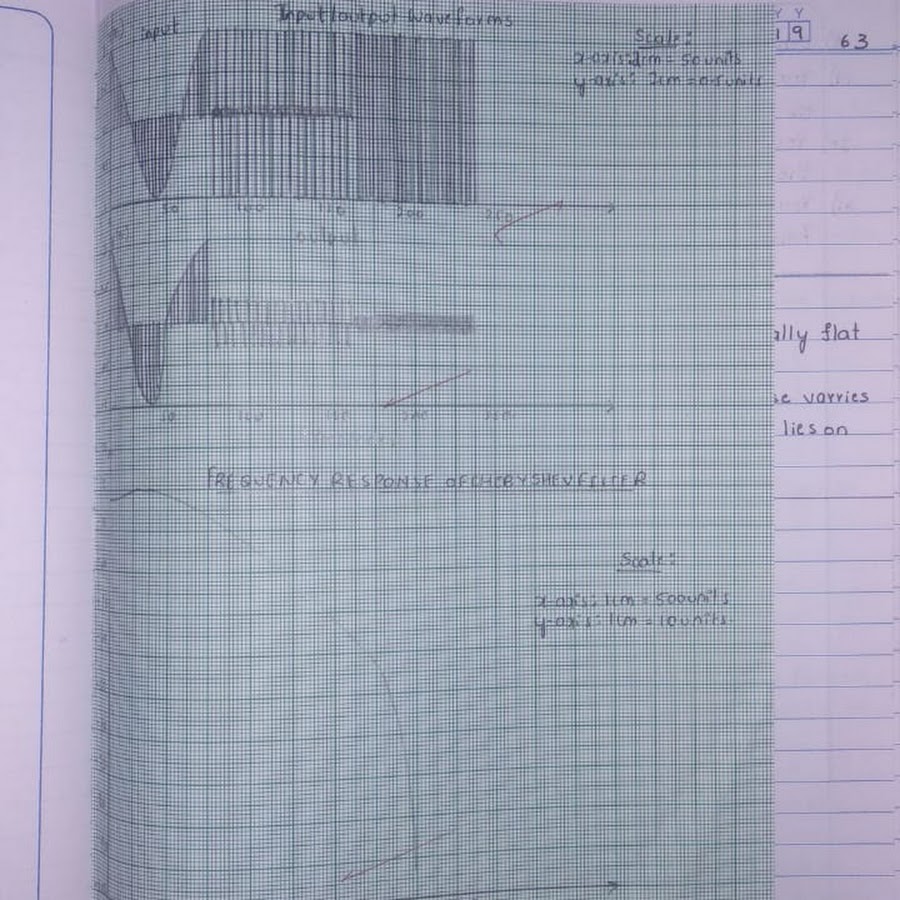 Input/output Waveforms
input
Scale:
x-axis: 1cm = 50units
y-axis: 1cm = 0.5units
50 100 150 200 250
output
50 100 150 200 250
FREQUENCY RESPONSE OF CHEBYSHEV FILTER
Scale:
x-axis: 1cm = 500units
y-axis: 1cm = 10units
Y Y
1 9
63
ally flat
se varries
lies on